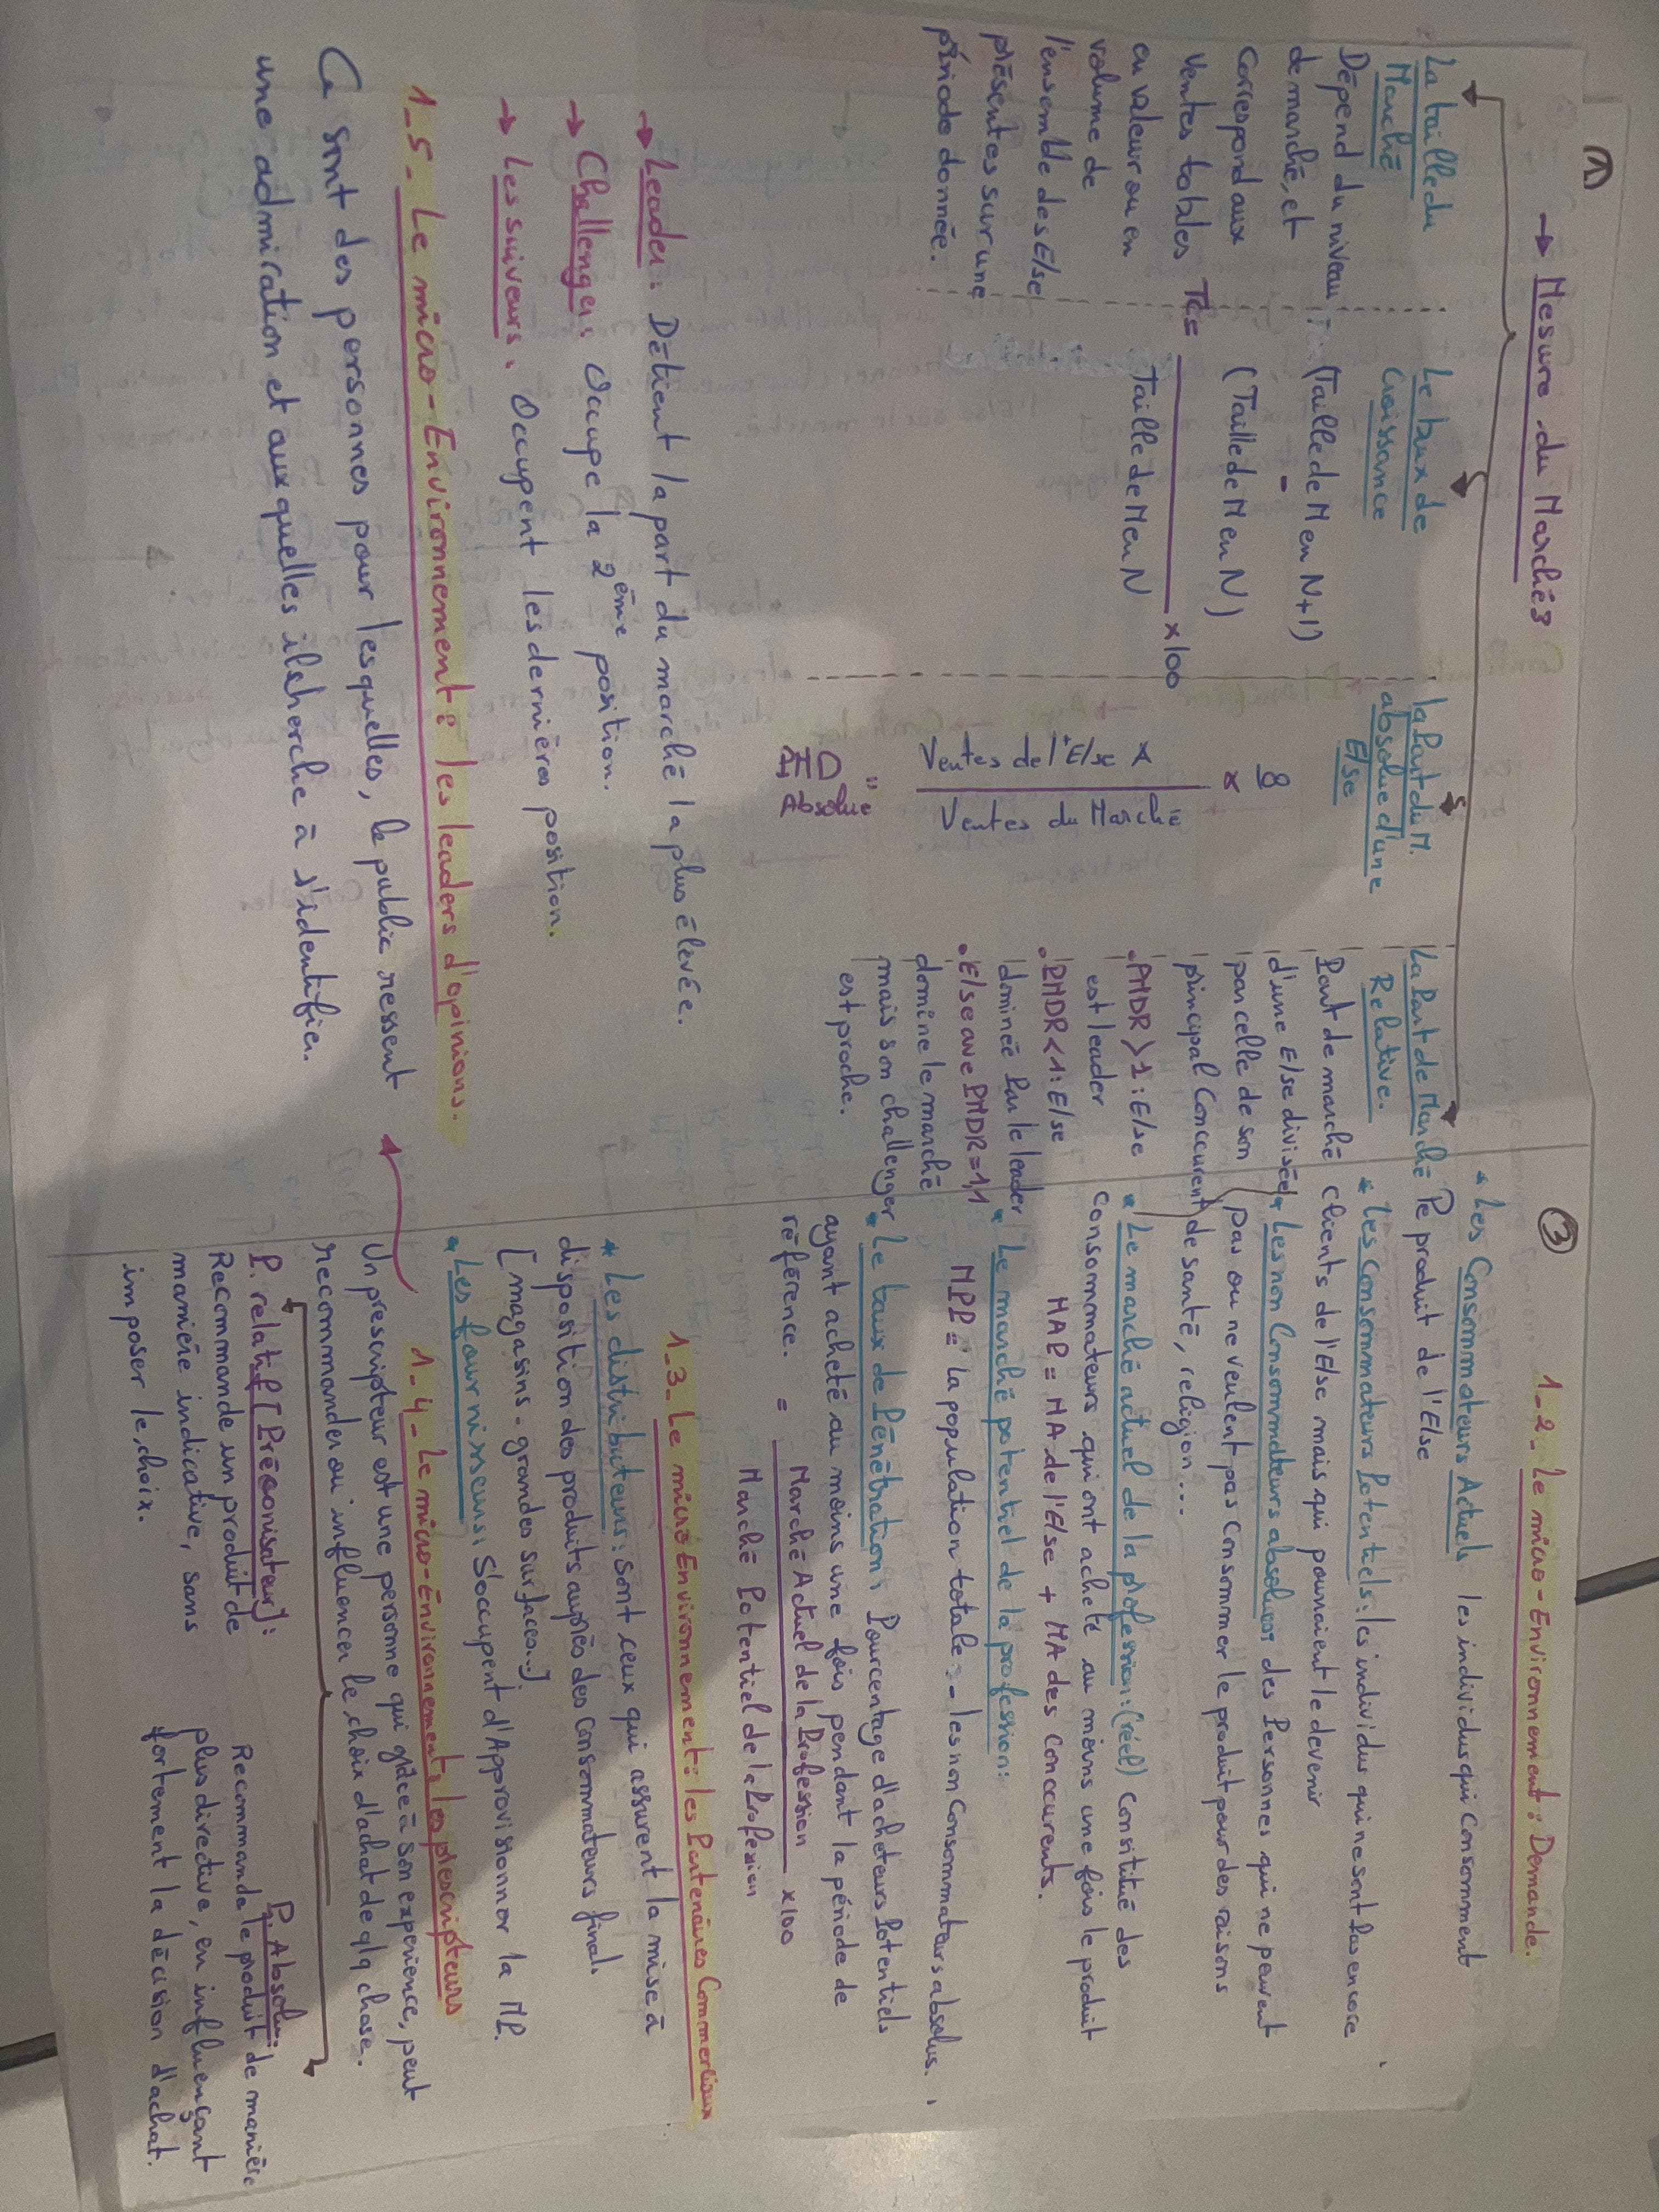 1
→ Mesure du Marché
La taille du
Marché
Dépend du niveau
de marché, et
correspond aux
ventes totales
en valeur ou en
volume de
l'ensemble des E/se
présentes sur une
période donnée.
Le taux de
Croissance
(Taille de M en N+1)
-
(Taille de M en N)
TC = x100
Taille de M en N
la Part du M.
absolue d'une
E/se
PMD Absolue = Ventes de l'E/se A x 100
Ventes du Marché
La Part de Marché
Relative.
Part de marché
d'une E/se divisée
par celle de son
principal Conccurent
• PMDR > 1 : E/se
est leader
• PMDR < 1 : E/se
dominée Par le leader
• E/se ave PMDR = 1,1
domine le marché
mais son challenger
est proche.
→ Leader : Détient la part du marché la plus élevée.
→ Challenger : Occupe la 2ème position.
→ Les suiveurs : Occupent les dernières position.
1-5- Le micro-Environnement : les leaders d'opinions.
Ce sont des personnes pour lesquelles, le public ressent
une admiration et aux quelles il cherche à s'identifier.
3
1-2- Le micro-Environnement : Demande.
* Les Consommateurs Actuels les individus qui Consomment
le produit de l'E/se
* Les Consommateurs Potentiels : les individus qui ne sont Pas encore
clients de l'E/se mais qui pourraient le devenir
* Les non Consommateurs absolus : des Personnes qui ne peuvent
pas ou ne veulent pas Consommer le produit pour des raisons
de santé, religion...
* Le marché actuel de la profession : (réel) Consititué des
Consommateurs qui ont acheté au moins une fois le produit
MAP = MA de l'E/se + MA des Conccurents.
* Le marché potentiel de la profession :
MPP = La population totale - les non Consommateurs absolus.
* Le taux de Pénétration : Pourcentage d'acheteurs Potentiels
ayant acheté au moins une fois pendant la période de
référence. = Marché Actuel de la Profession x100
Marché Potentiel de la Profession
1-3- Le micro Environnement : les Partenaires Commerciaux
* Les distributeurs : Sont ceux qui assurent la mise à
disposition des produits auprès des Consommateurs final.
[magasins - grandes surfaces...]
* Les fournisseurs : S'occupent d'Approvisionner la MP.
1-4- Le micro-Environnement : les prescripteurs
Un prescripteur est une personne qui grâce à son expérience, peut
recommander ou influencer le choix d'achat de qlq chose.
P. relatif [Préconisateur] :
Recommande un produit de
manière indicative, sans
imposer le choix.
P. Absolu.
Recommande le produit de manière
plus directive, en influençant
fortement la décision d'achat.